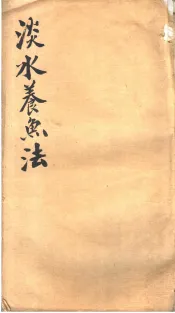 淡水養魚法